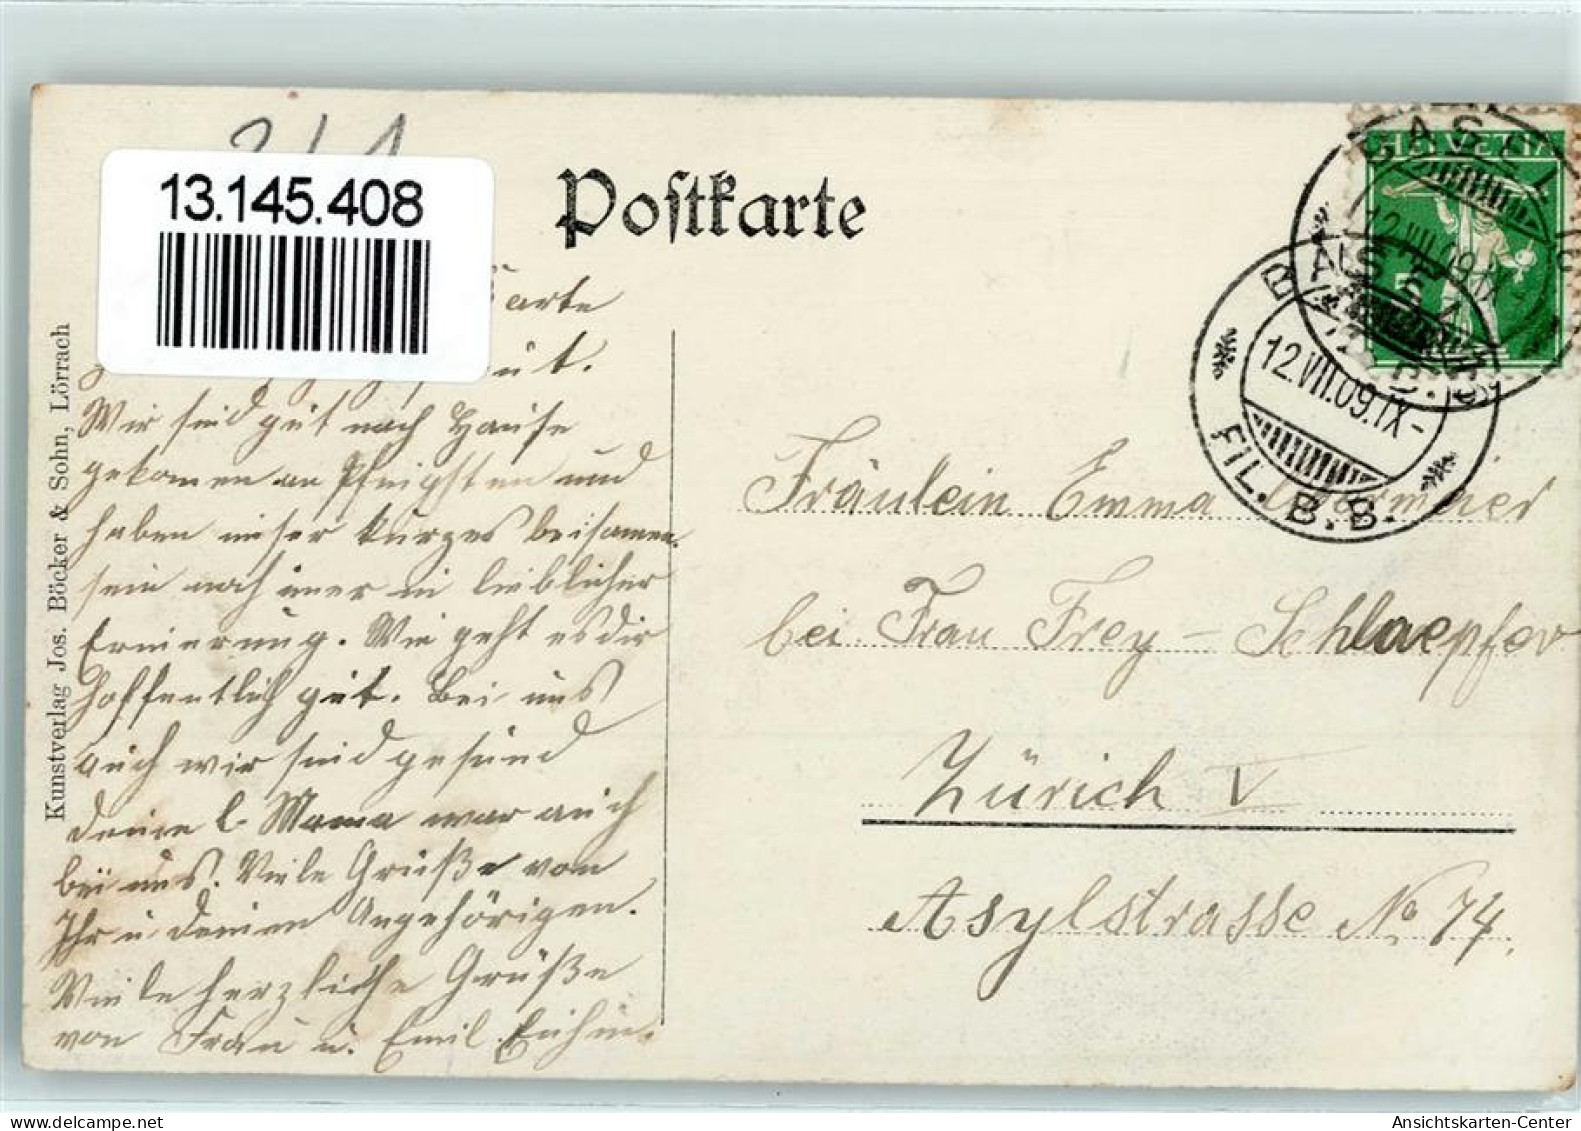 13.145.408
Postkarte
HELVETIA
BASEL
12.VII.09.IX-
BASEL
12.VII.09.IX-
FIL. B.B.
Kunstverlag Jos. Böcker & Sohn, Lörrach
Karte
gut.
Wir seid gut nach Hause
gekomen an Pfingsten und
haben unser kurzes beisamen
sein noch imer in lieblicher
Erinerung. Wie geht es dir
hoffentlich gut. Bei uns
auch wir seid gesund
deine l. Mama war auch
bei uns. Viele Grüße von
Ihr u deinen Angehörigen.
Viele herzliche Grüße
von Frau u. Emil
Fräulein Emma
bei Frau Frey - Schlaepfer
Zürich V
Asylstrasse No 74.
Ansichtskarten-Center